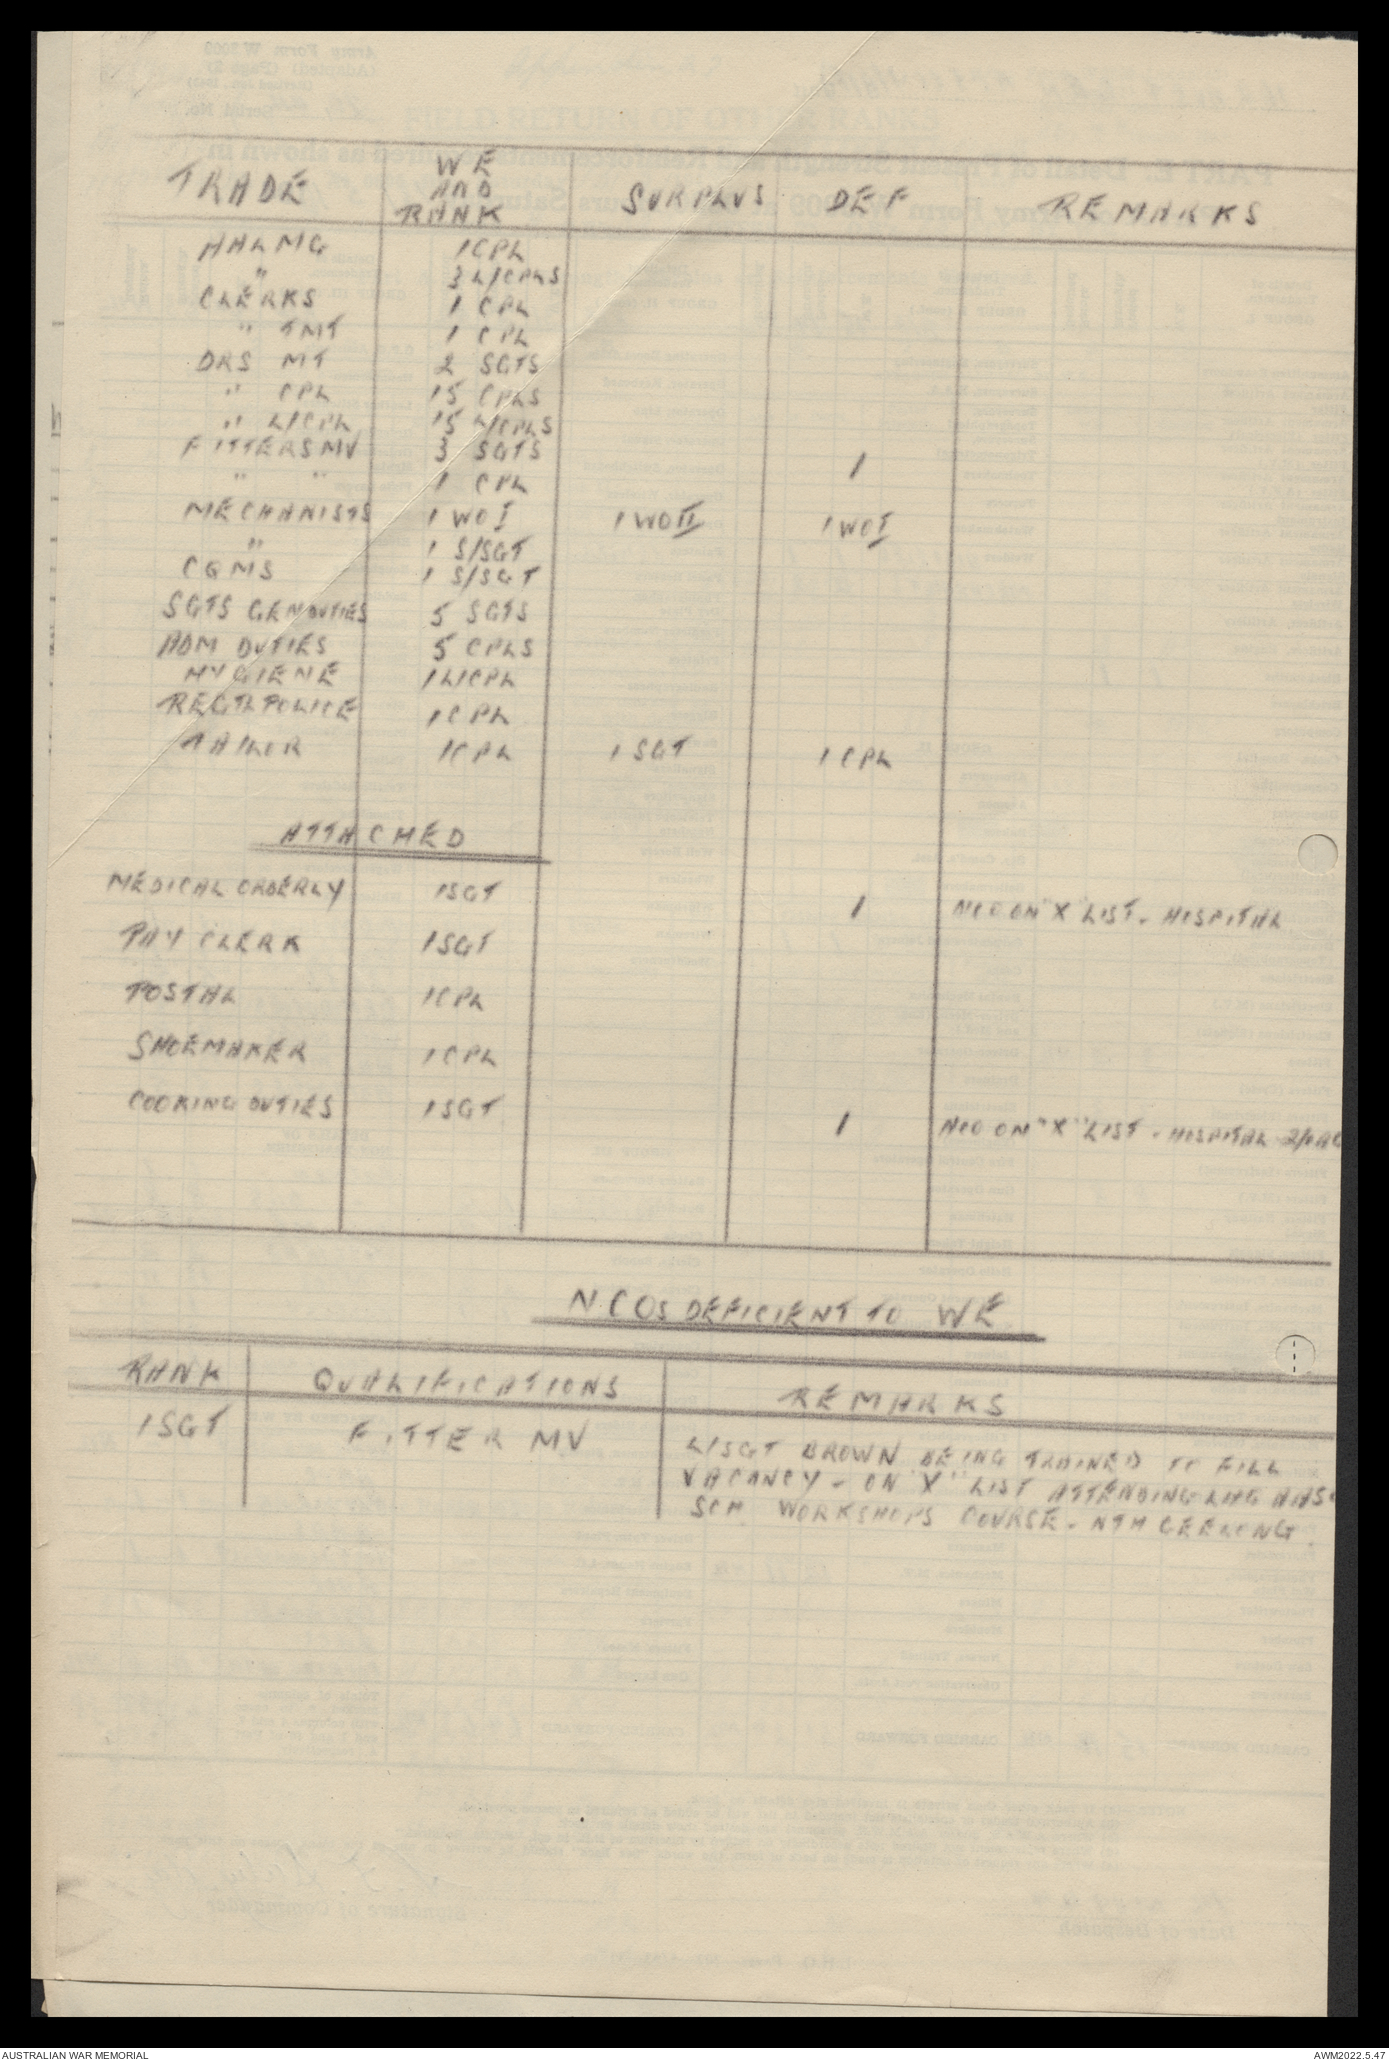 TRADE WE AND RANK SURPLUS DEF REMARKS
AALMG 1 CPL
" 3 L/CPLS
CLERKS 1 CPL
" TMT 1 CPL
DRS MT 2 SGTS
" CPL 15 CPLS
" L/CPL 15 L/CPLS
FITTERS MV 3 SGTS 1
" " 1 CPL
MECHANISTS 1 WO I 1 WO II 1 WO I
" 1 S/SGT
CQMS 1 S/SGT
SGTS GEN DUTIES 5 SGTS
ADM DUTIES 5 CPLS
HYGIENE 1 L/CPL
REGTL POLICE 1 CPL
TAILOR 1 CPL 1 SGT 1 CPL
ATTACHED
MEDICAL ORDERLY 1 SGT 1 NCO ON "X" LIST - HOSPITAL
PAY CLERK 1 SGT
POSTAL 1 CPL
SHOEMAKER 1 CPL
COOKING DUTIES 1 SGT 1 NCO ON "X" LIST - HOSPITAL
NCOS DEFICIENT TO WE
RANK QUALIFICATIONS REMARKS
1 SGT FITTER MV L/SGT BROWN BEING TRAINED TO FILL
VACANCY - ON "X" LIST ATTENDING LHQ AASC
SCH. WORKSHOPS COURSE - NTH GEELONG.
AUSTRALIAN WAR MEMORIAL
AWM2022.5.47